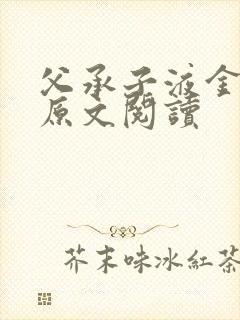 父承子液全
原文閱讀
芥末味冰紅茶